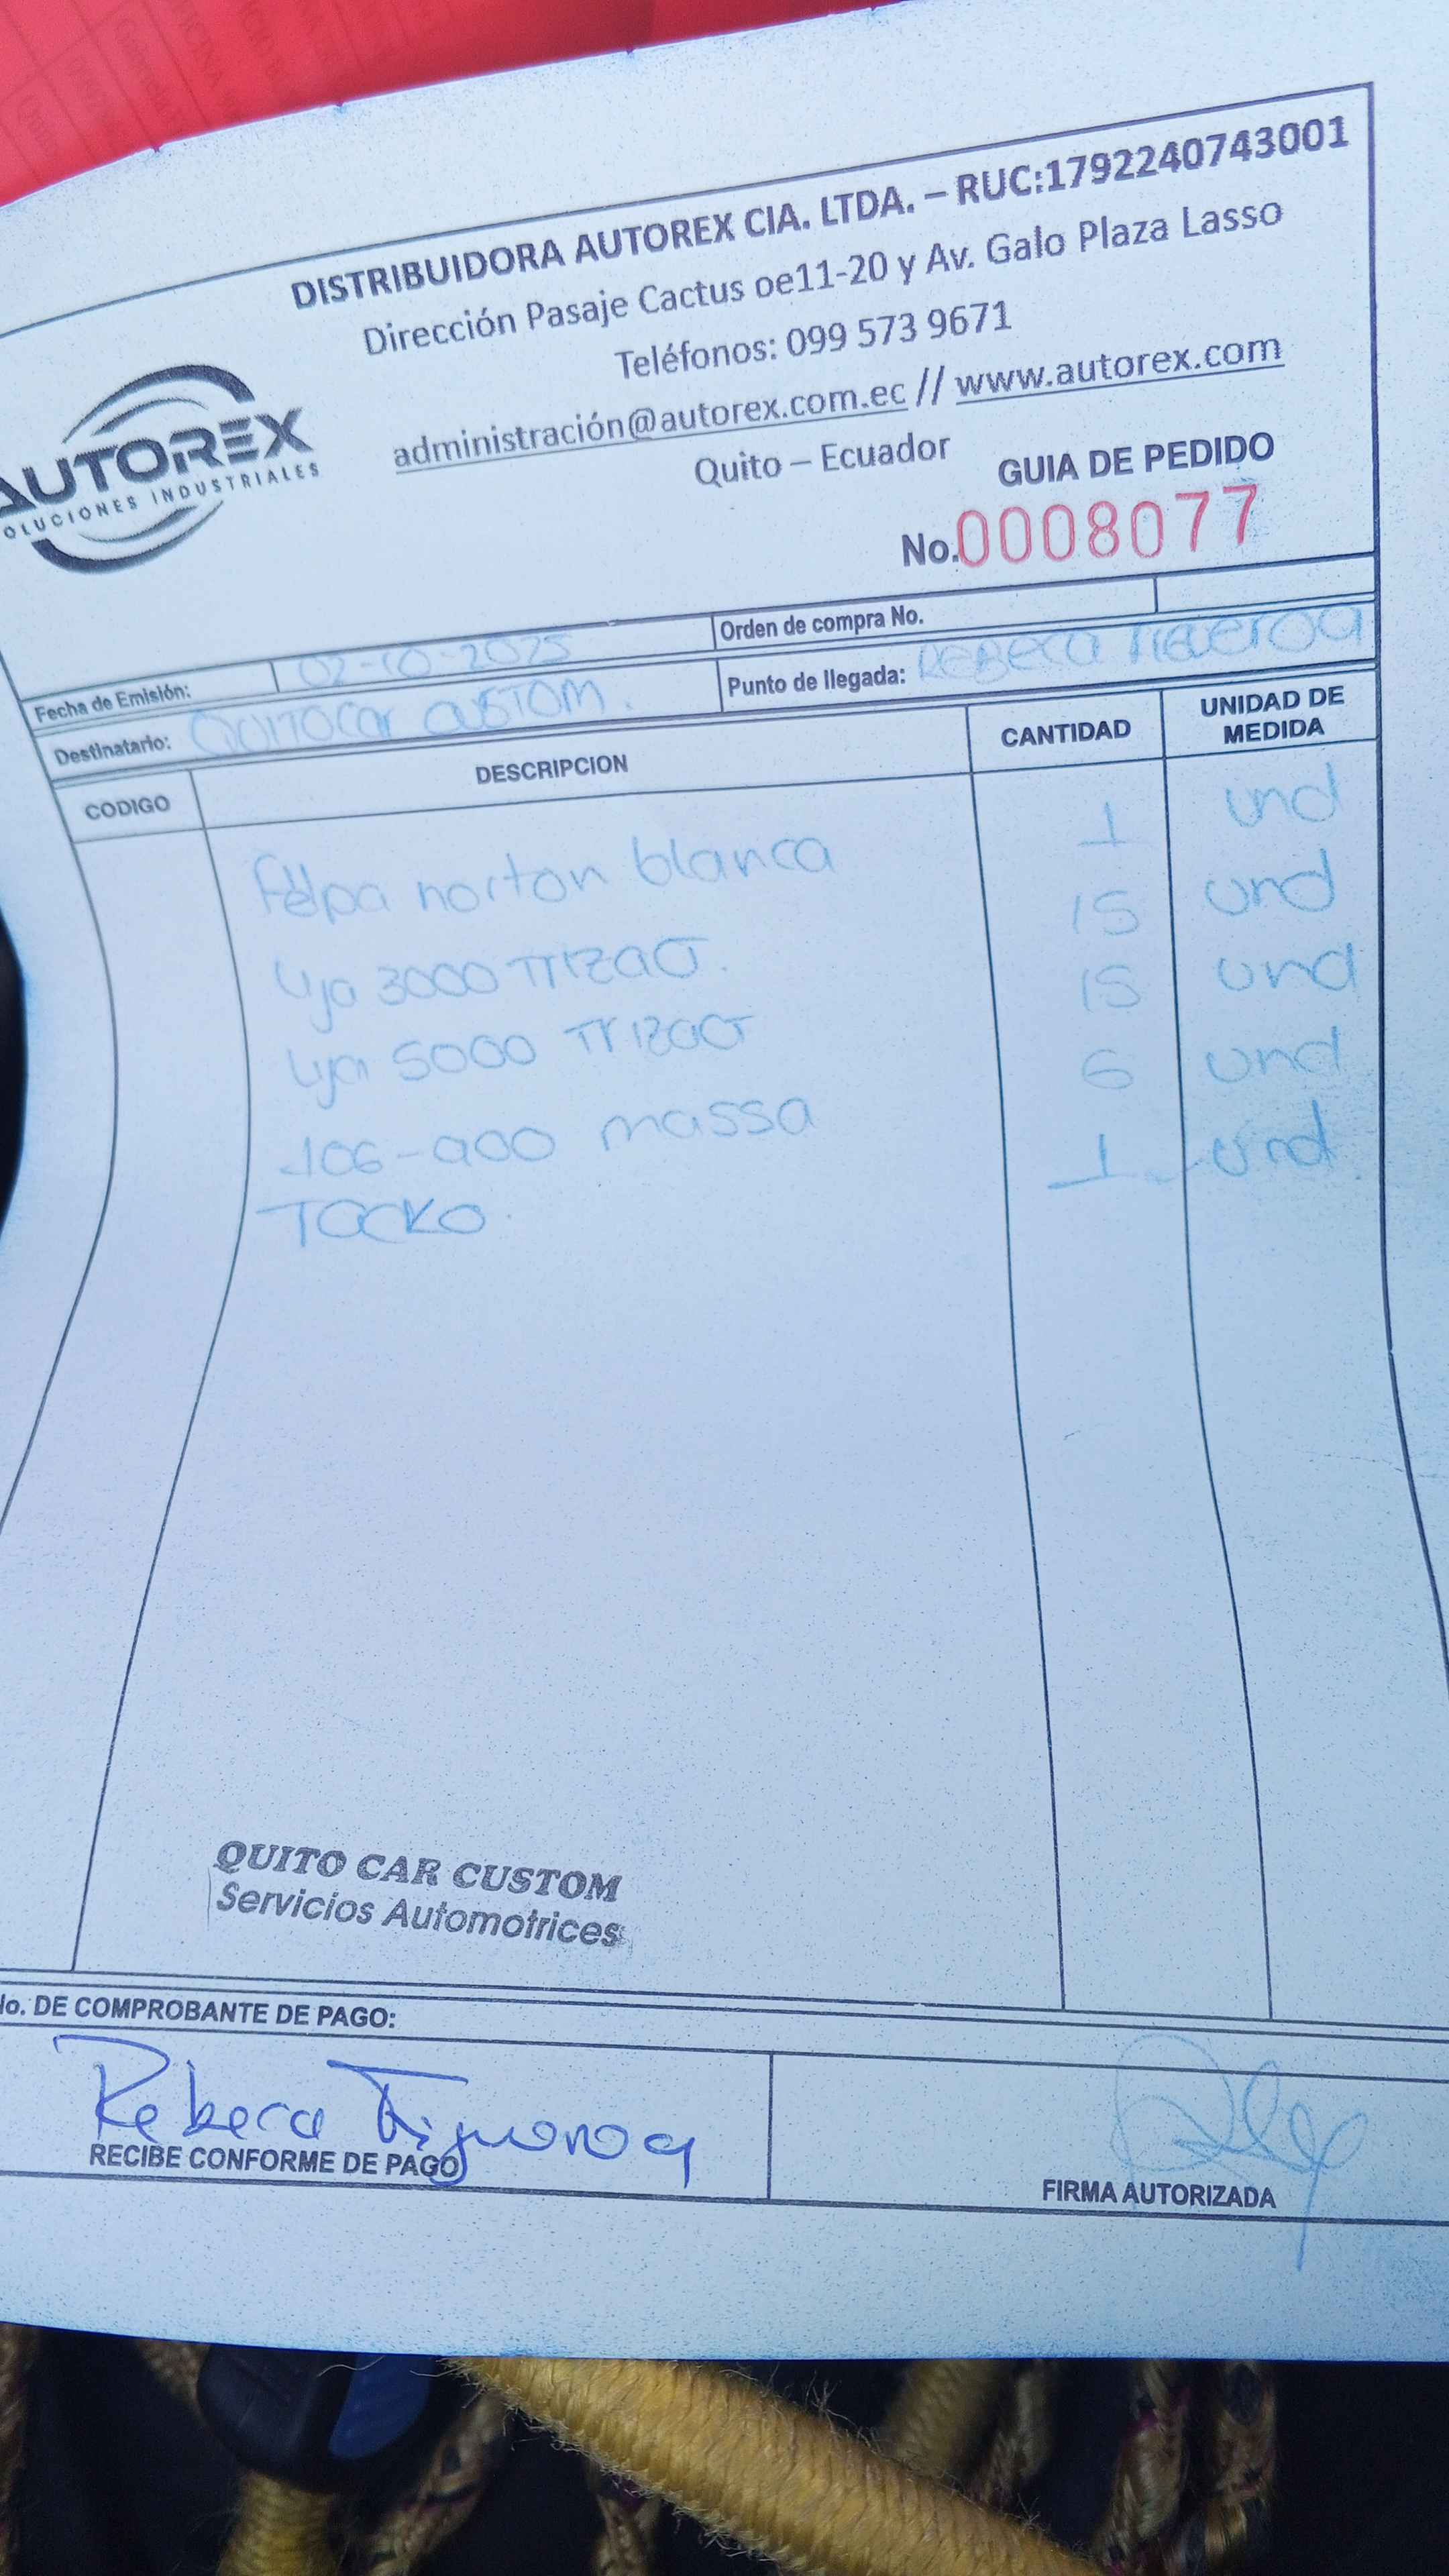 DISTRIBUIDORA AUTOREX CIA. LTDA. – RUC:1792240743001
Dirección Pasaje Cactus oe11-20 y Av. Galo Plaza Lasso
Teléfonos: 099 573 9671
administración@autorex.com.ec // www.autorex.com
Quito – Ecuador
AUTOREX
OLUCIONES INDUSTRIALES
GUIA DE PEDIDO
No.0008077
Fecha de Emisión: 02-10-2025 Orden de compra No.
Destinatario: Quitocar custom. Punto de llegada: Rebeca Figueroa
CODIGO DESCRIPCION CANTIDAD UNIDAD DE MEDIDA
Felpa norton blanca 1 und
Lija 3000 Trizact. 15 und
Lija 5000 Trizact 15 und
massa 6 und
Tacko. 1 und
QUITO CAR CUSTOM
Servicios Automotrices
No. DE COMPROBANTE DE PAGO:
Rebeca Figueroa
RECIBE CONFORME DE PAGO
FIRMA AUTORIZADA